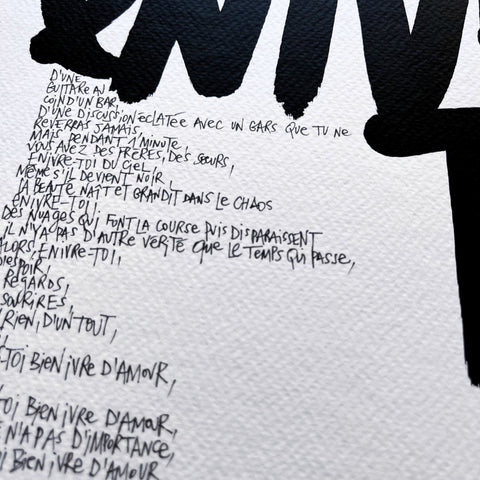 D'UNE
GUITARE AU
COIN D'UN BAR,
D'UNE DISCUSSION ÉCLATÉE AVEC UN GARS QUE TU NE
REVERRAS JAMAIS,
MAIS PENDANT 1 MINUTE
VOUS AVEZ DES FRÈRES, DES SŒURS,
ENIVRE-TOI DU CIEL
MÊME S'IL DEVIENT NOIR,
LA BEAUTÉ NAÎT ET GRANDIT DANS LE CHAOS
ENIVRE-TOI,
DES NUAGES QUI FONT LA COURSE PUIS DISPARAISSENT
IL N'Y A PAS D'AUTRE VÉRITÉ QUE LE TEMPS QUI PASSE,
ALORS, ENIVRE-TOI,
ESPOIR,
REGARDS,
SOURIRES,
RIEN, D'UN TOUT,
TOI BIEN IVRE D'AMOUR,
TOI BIEN IVRE D'AMOUR,
N'A PAS D'IMPORTANCE,
BIEN IVRE D'AMOUR